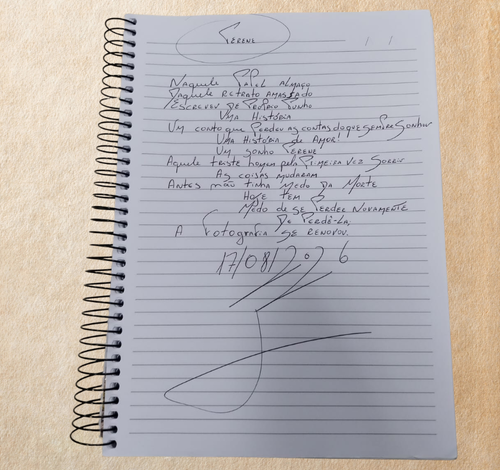 Perene
Naquele Papel almaço
Daquele retrato amassado
Escreveu de próprio punho
Uma história
Um conto que perdeu as contas do que sempre sonhou
Uma história de amor!
Um sonho perene!
Aquele triste homem pela primeira vez sorriu
As coisas mudaram
Antes não tinha medo da morte
Hoje tem
Medo de se perder novamente
De perdê-la,
A fotografia se renovou.
17/08/